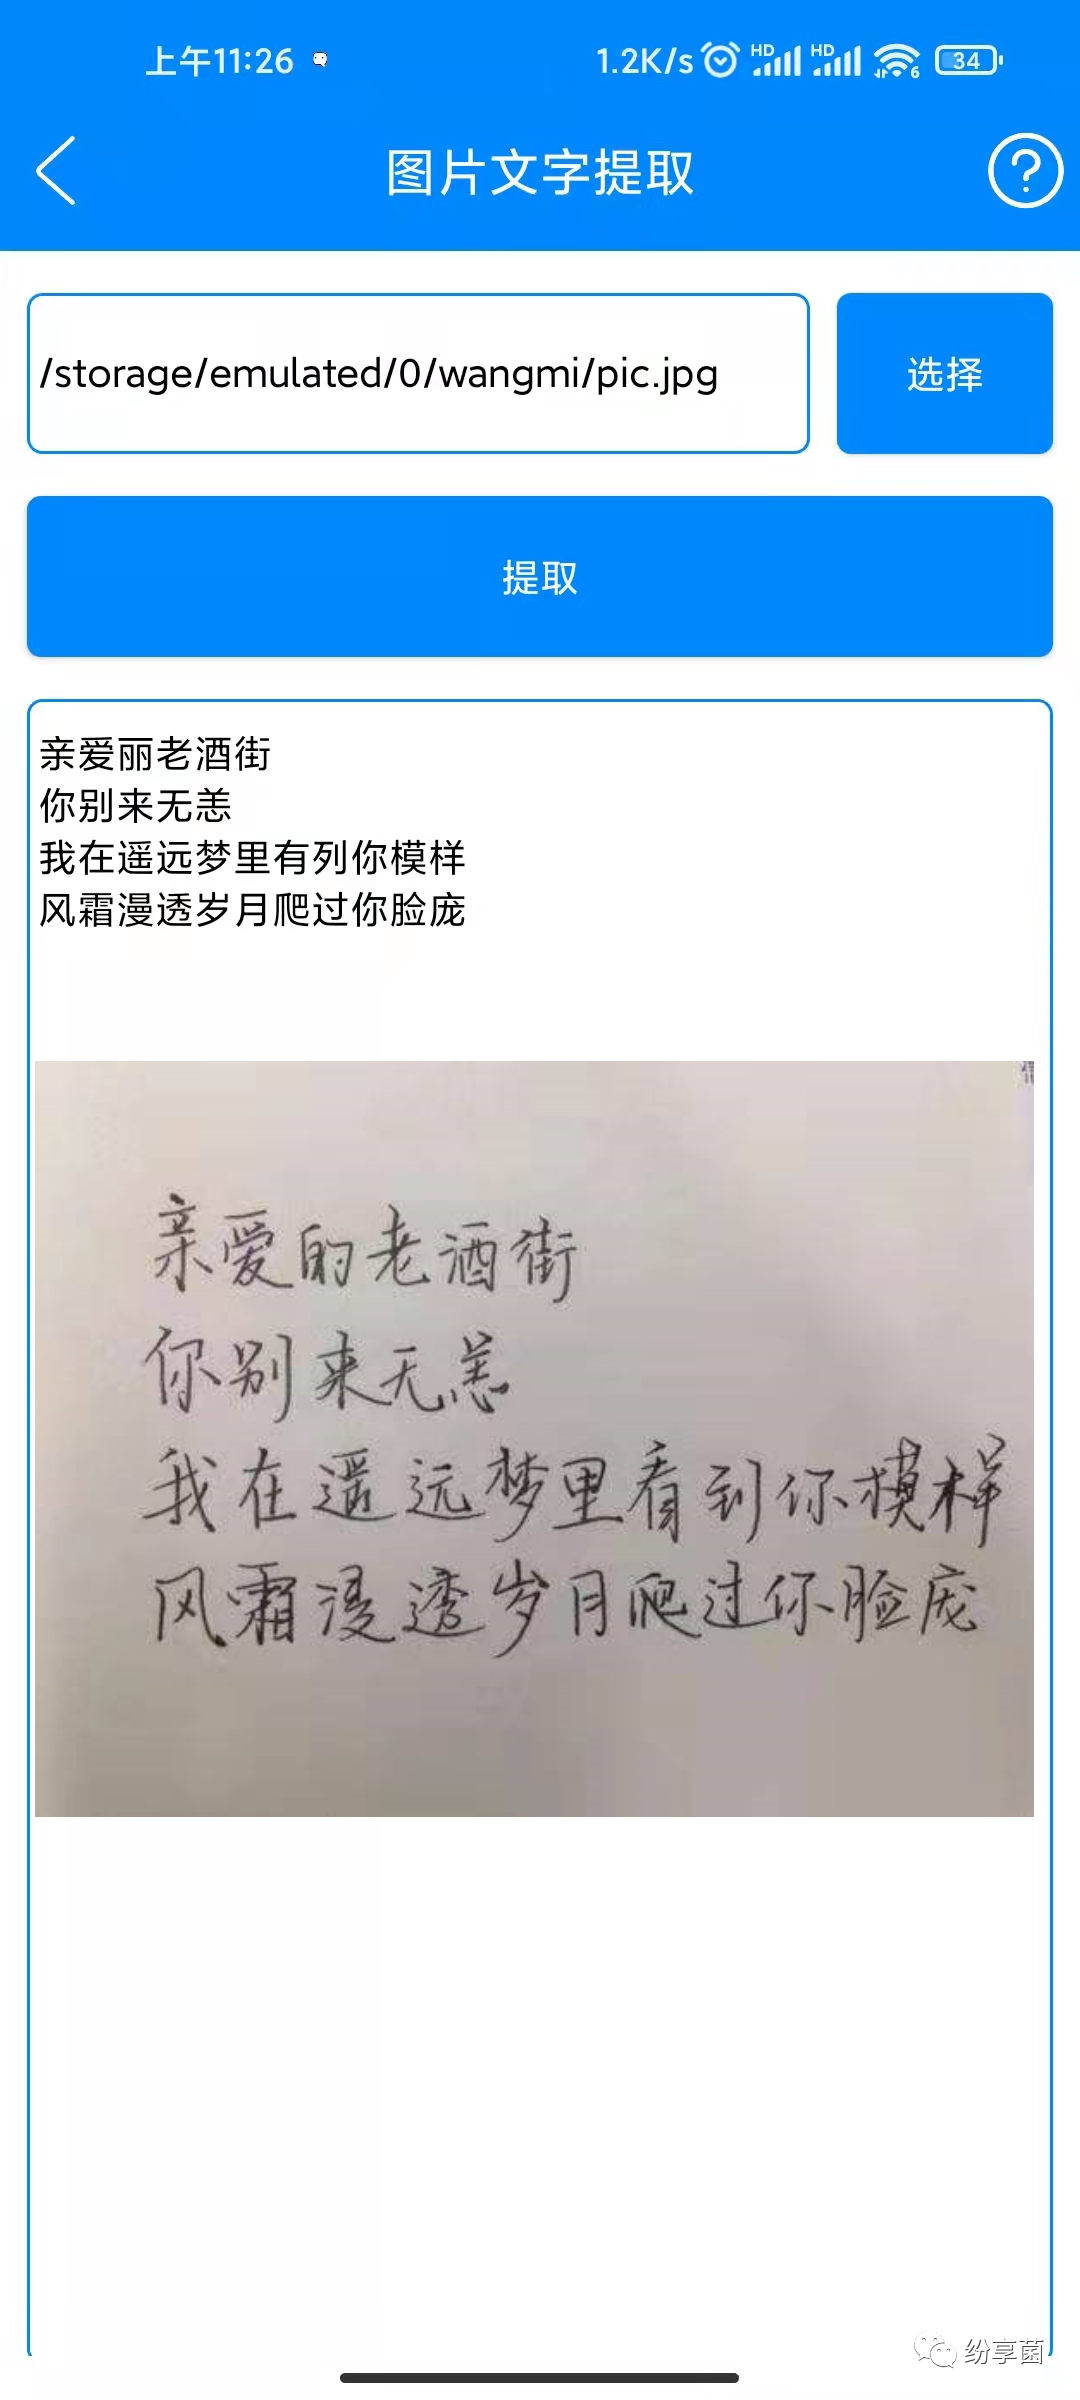 上午11:26 1.2K/s HD HD 6 34
图片文字提取
/storage/emulated/0/wangmi/pic.jpg 选择
提取
亲爱丽老酒街
你别来无恙
我在遥远梦里有列你模样
风霜漫透岁月爬过你脸庞
亲爱的老酒街
你别来无恙
我在遥远梦里看到你模样
风霜浸透岁月爬过你脸庞
纷享菌